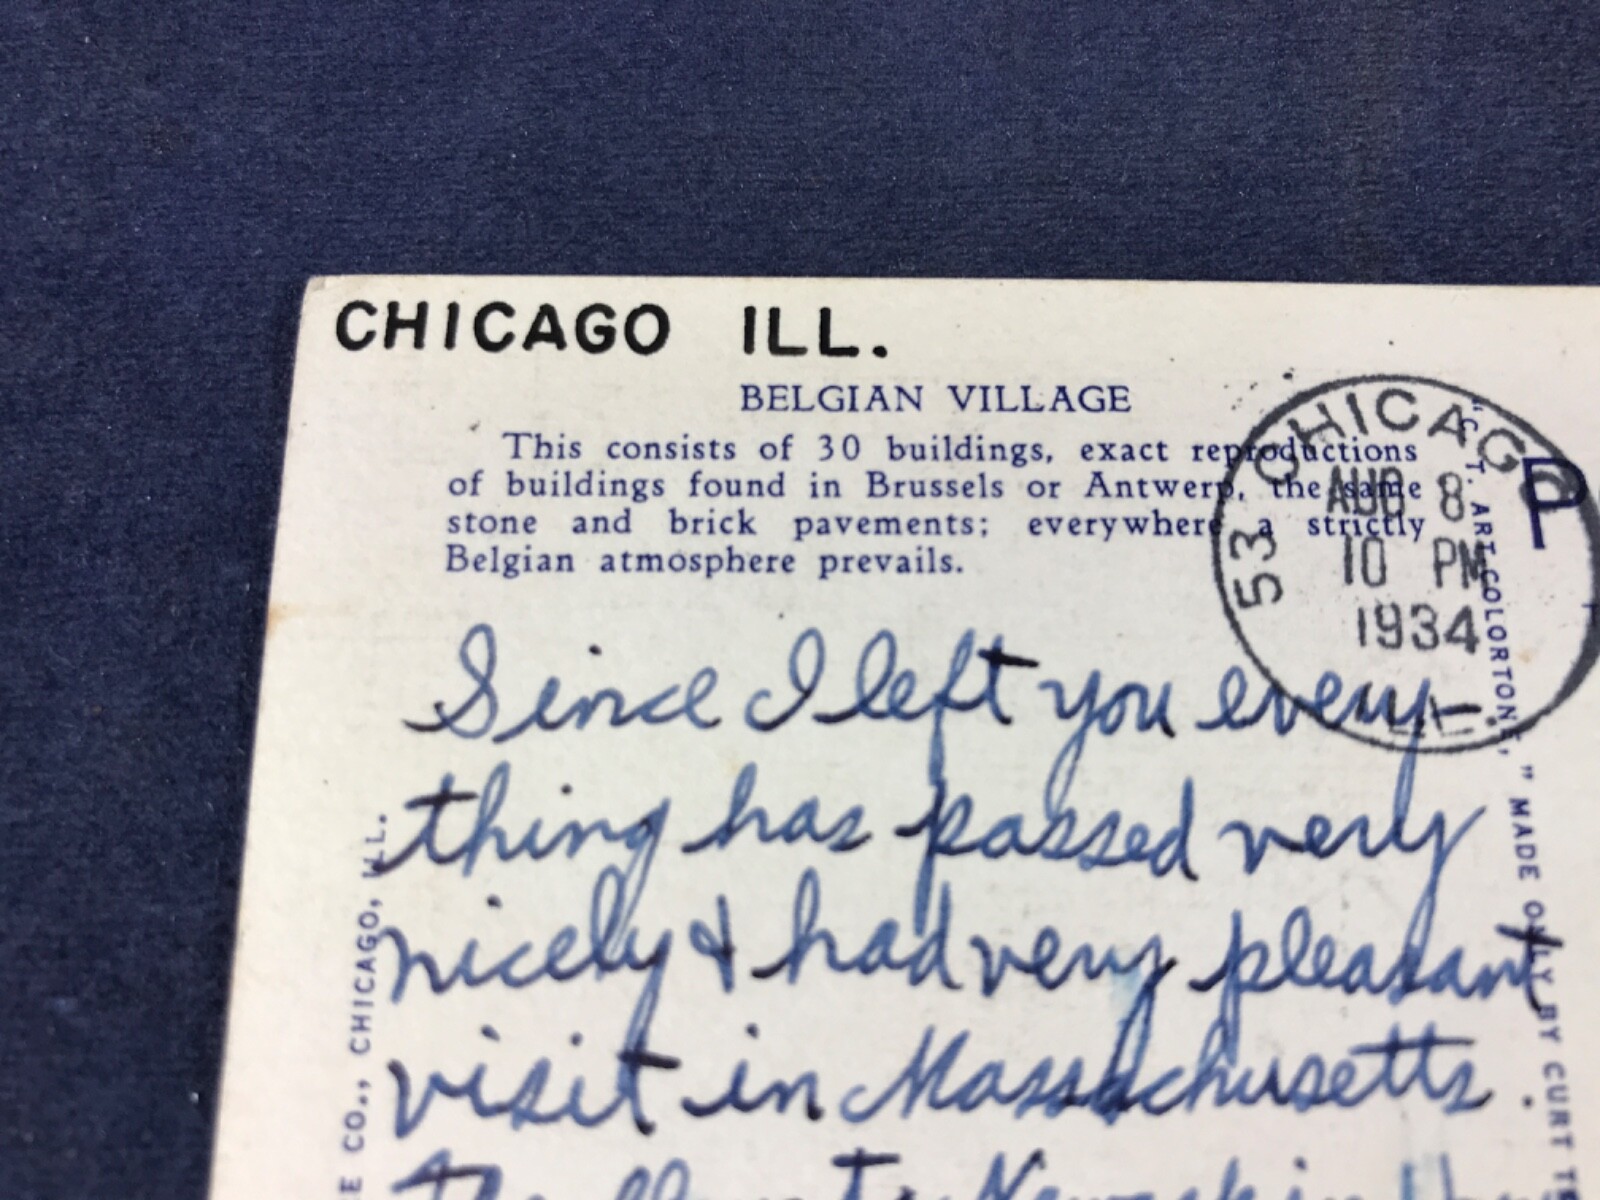 CHICAGO ILL.
BELGIAN VILLAGE
This consists of 30 buildings, exact reproductions
of buildings found in Brussels or Antwerp, the same
stone and brick pavements; everywhere a strictly
Belgian atmosphere prevails.
53 CHICAGO
AUG 8
10 PM
1934
ILL.
P
Since I left you every-
thing has passed very
nicely & had very pleasant
visit in Massachusetts
E CO., CHICAGO, ILL.
"C. T. ART-COLORTONE," MADE ONLY BY CURT T